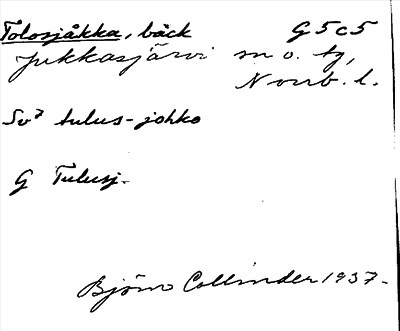 Tolosjåkka, bäck G5c5
Jukkasjärvi sn o. tg,
Norrb. l.
Sv? tulus-johko
G Tulusj.
Björn Collinder 1937.